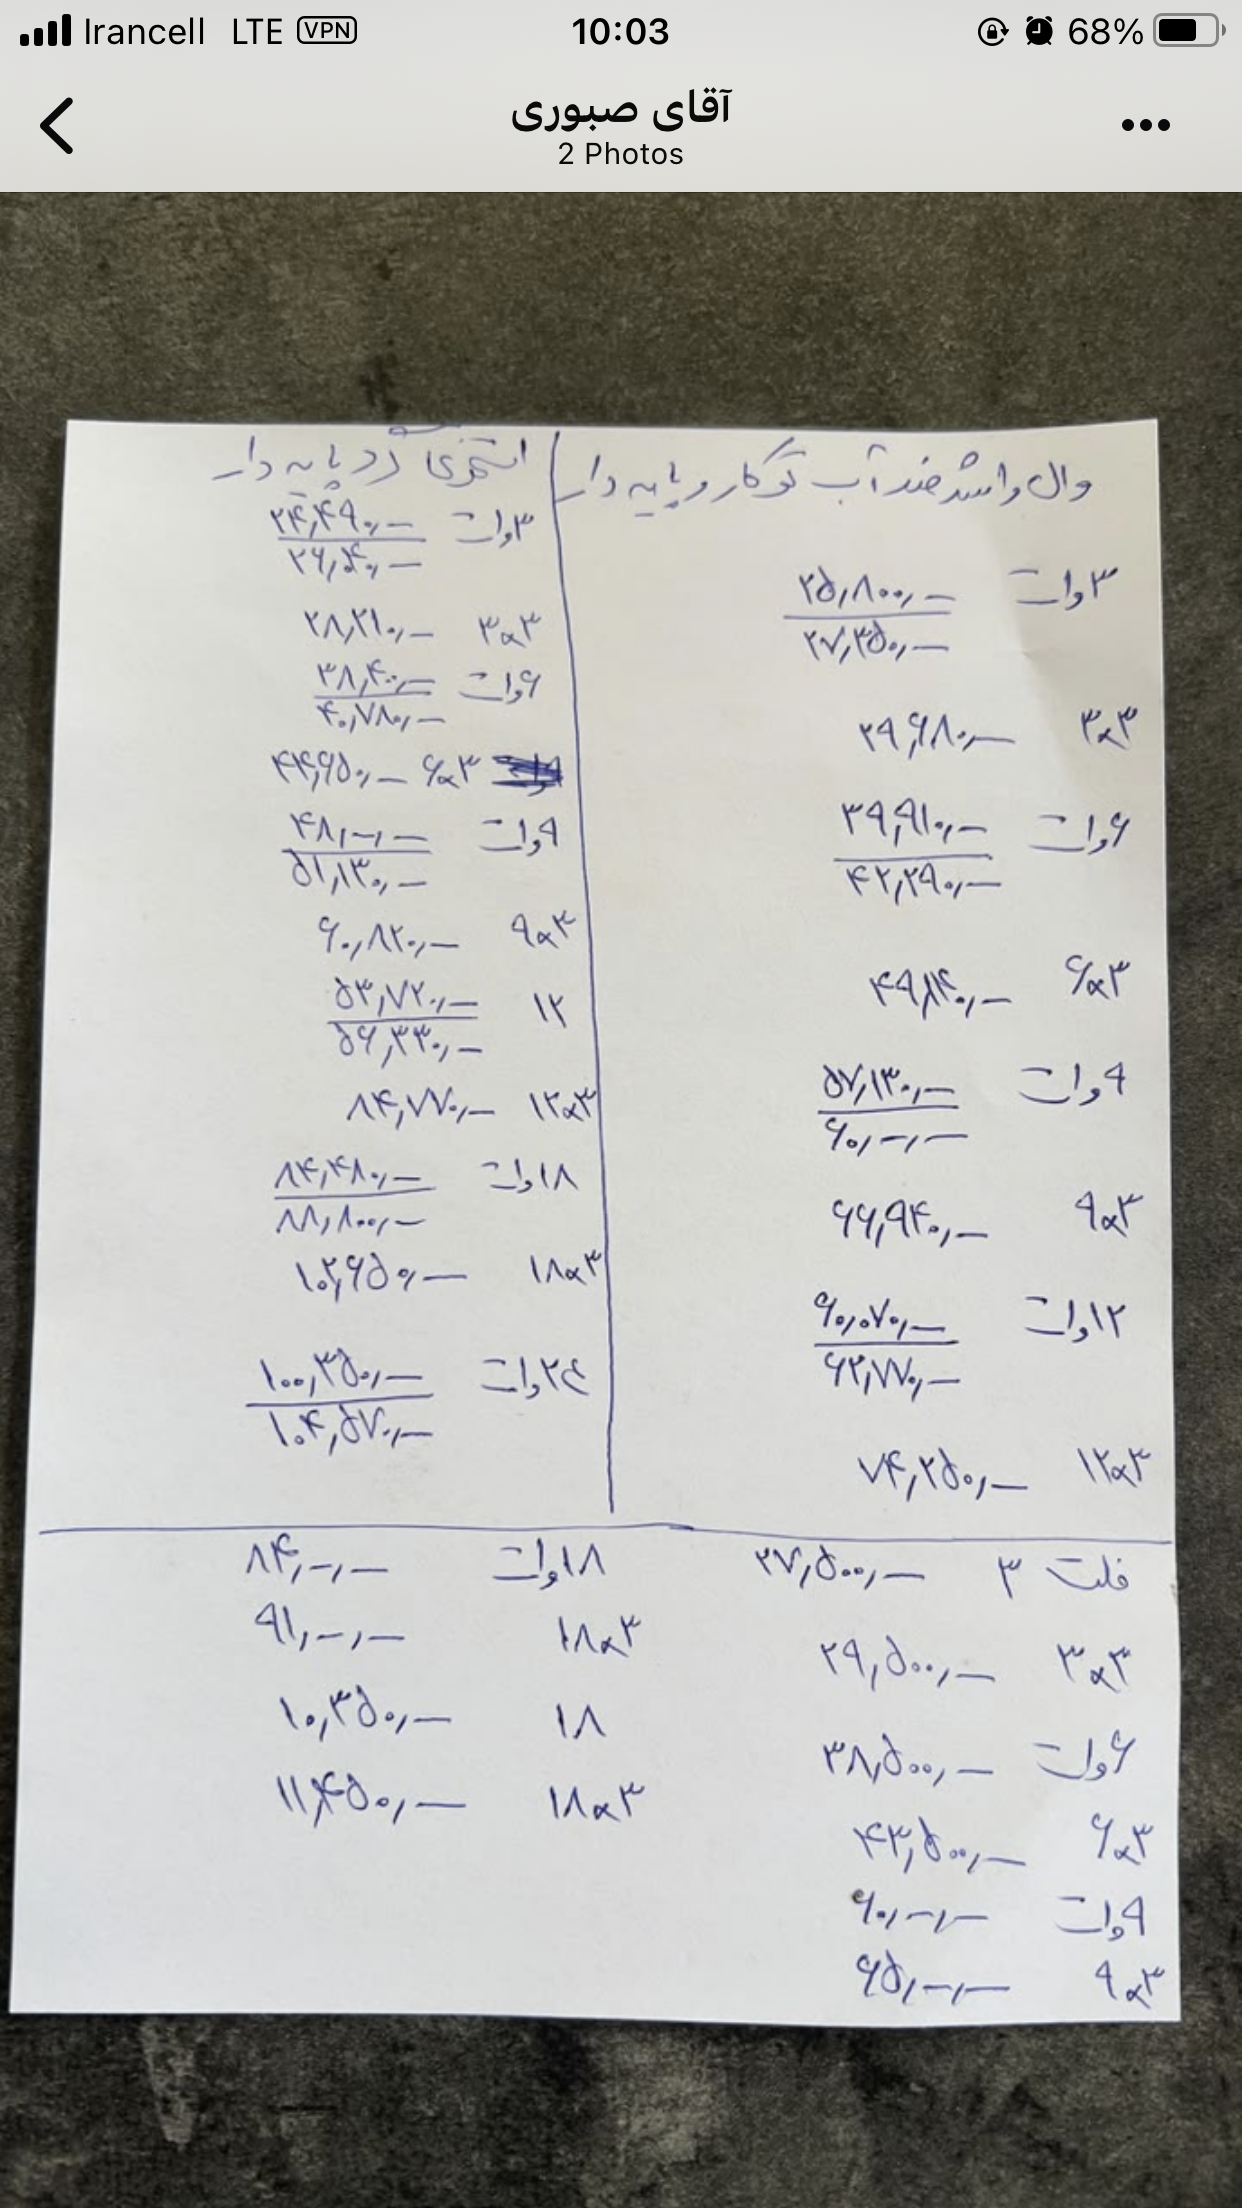 Irancell LTE VPN 10:03 68%
آقای صبوری
2 Photos
وال واشر ضدآب توکار و پایه دار
۳وات ۲۵,۸۰۰,-
۲۷,۳۵۰,-
۳ₓ۳ ۲۹,۶۸۰,-
۶وات ۳۹,۹۱۰,-
۴۲,۲۹۰,-
۶ₓ۳ ۴۹,۱۴۰,-
۹وات ۵۷,۱۳۰,-
۶۰,-,-
۹ₓ۳ ۶۶,۹۴۰,-
۱۲وات ۶۰,۰۷۰,-
۶۲,۷۷۰,-
۱۲ₓ۳ ۷۴,۲۵۰,-
استخری گرد پایه دار
۳وات ۲۴,۴۹۰,-
۲۶,۰۴۰,-
۳ₓ۳ ۲۸,۲۱۰,-
۶وات ۳۸,۴۰۰,-
۴۰,۷۸۰,-
۶ₓ۳ ۴۴,۶۵۰,-
۹وات ۴۸,-,-
۵۱,۱۳۰,-
۹ₓ۳ ۶۰,۸۲۰,-
۱۲ ۵۳,۷۲۰,-
۵۶,۳۳۰,-
۱۲ₓ۳ ۸۴,۷۷۰,-
۱۸وات ۸۴,۴۸۰,-
۸۸,۸۰۰,-
۱۸ₓ۳ ۱۰۲,۶۵۰,-
۲۴وات ۱۰۰,۳۵۰,-
۱۰۴,۵۷۰,-
فلت ۳ ۲۷,۵۰۰,-
۳ₓ۳ ۲۹,۵۰۰,-
۶وات ۳۸,۵۰۰,-
۶ₓ۳ ۴۳,۵۰۰,-
۹وات ۶۰,-,-
۹ₓ۳ ۶۵,-,-
۱۸وات ۸۴,-,-
۱۸ₓ۳ ۹۱,-,-
۱۸ ۱۰,۳۵۰,-
۱۸ₓ۳ ۱۱,۴۵۰,-